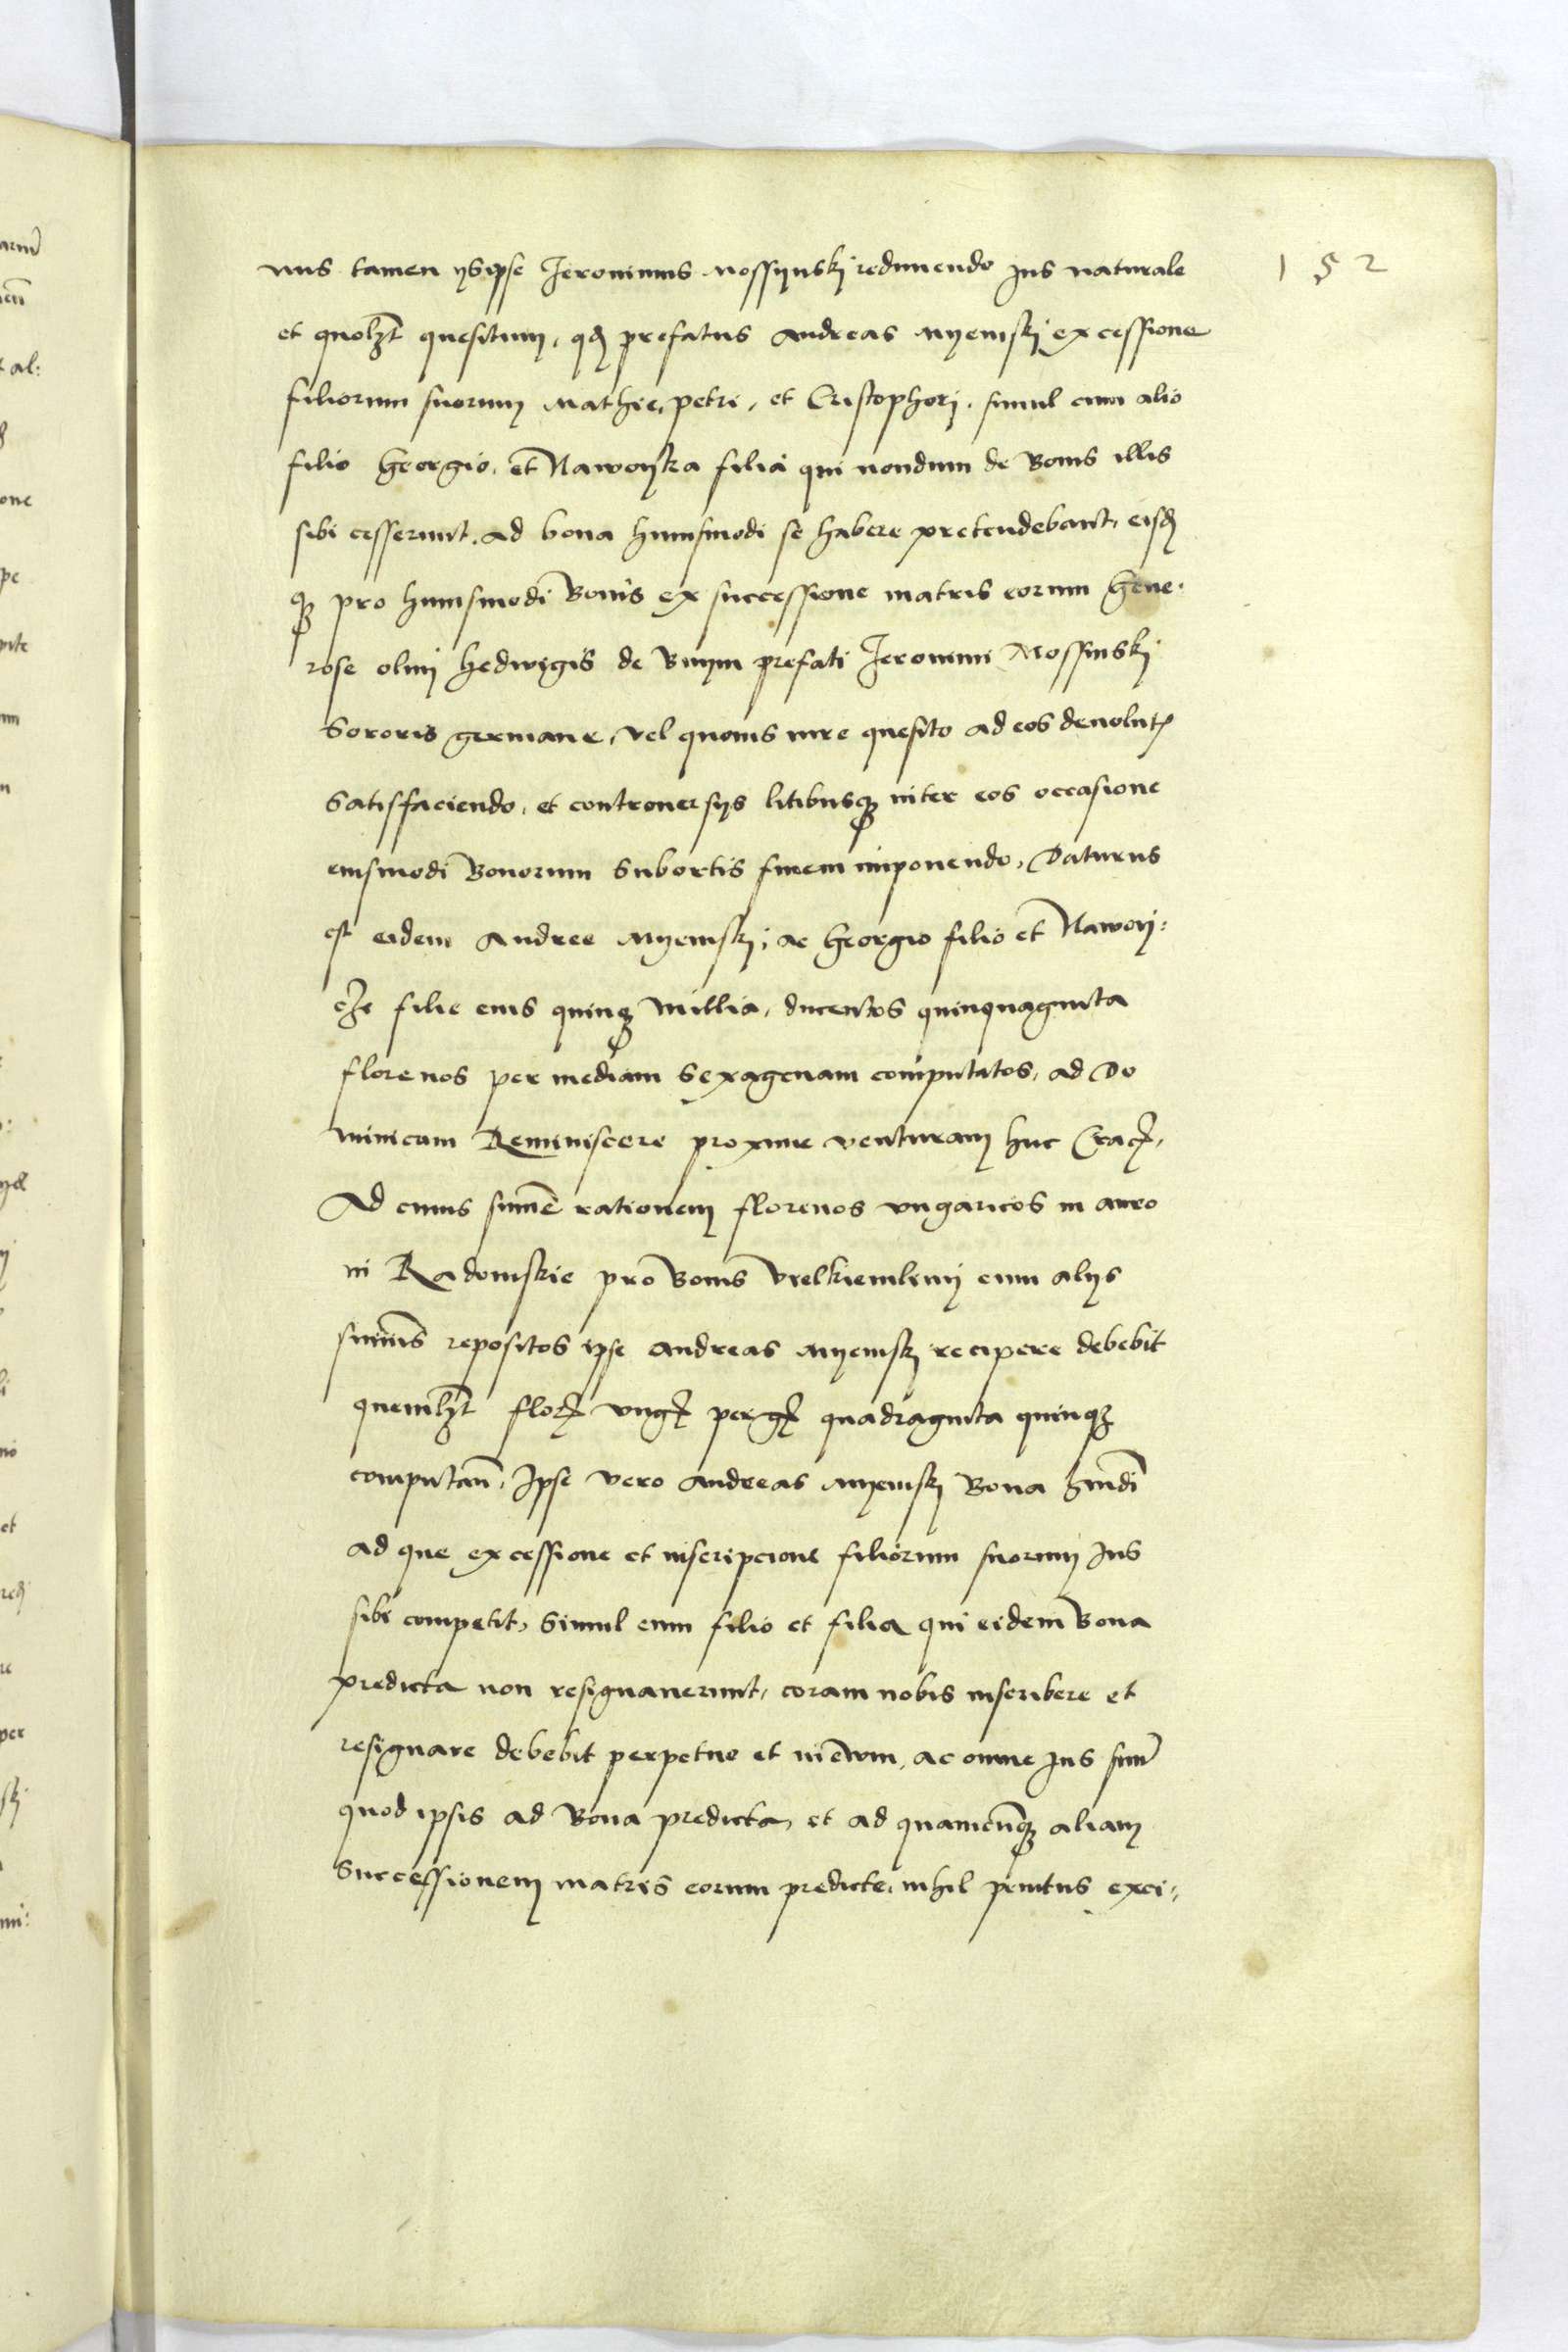 152
nus tamen ysipse Jeronimus mossynskj redimendo jus naturale
et quolzt quesitum, qd prefatus Andreas myemskj ex cessione
filiorum suorum Mathie, petri, et Cristophorj. simul cum alio
filio Georgio, et Nawoyka filia qui nondum de Bonis illis
sibi cesserunt, ad bona huiusmodi se habere pretendebant, eisd
q3 pro huiusmodi Bonis ex successione matris eorum Gene.
rose olim Hedwigis de Bnyn prefati Jeronimi Mossinskj
Sororis germane, vel quouis iure quesito ad eos deuolut
Satisfaciendo, et controuersijs litibusq3 inter eos occasione
eiusmodi Bonorum Subortis finem imponendo, Daturus
est eidem Andree myemskj, ac Georgio filio et Nawoy:
cze filie eius quinq3 millia, ducentos quinquaginta
florenos per mediam Sexagenam computatos, ad Do
minicam Reminiscere proxime venturam huc Crac,
Ad cuius summe rationem florenos vngaricos in auro
in Radomskie pro Bonis Vielkiemlyny cum alijs
summis repositos ipse Andreas myemskj recipere debebit
quemlzt flor vng per g quadraginta quinq3
computan, Ipse vero Andreas myemskj Bona hmdi
ad que ex cessione et inscripcione filiorum suorum Jus
sibi competit, Simul cum filio et filia qui eidem Bona
predicta non resignauerunt, coram nobis inscribere et
resignare debebit perpetue et in ewm, ac omne jus suum
quod ipsis ad Bona predicta, et ad quamcunq3 aliam
Successionem matris eorum predicte, nihil penitus exci: